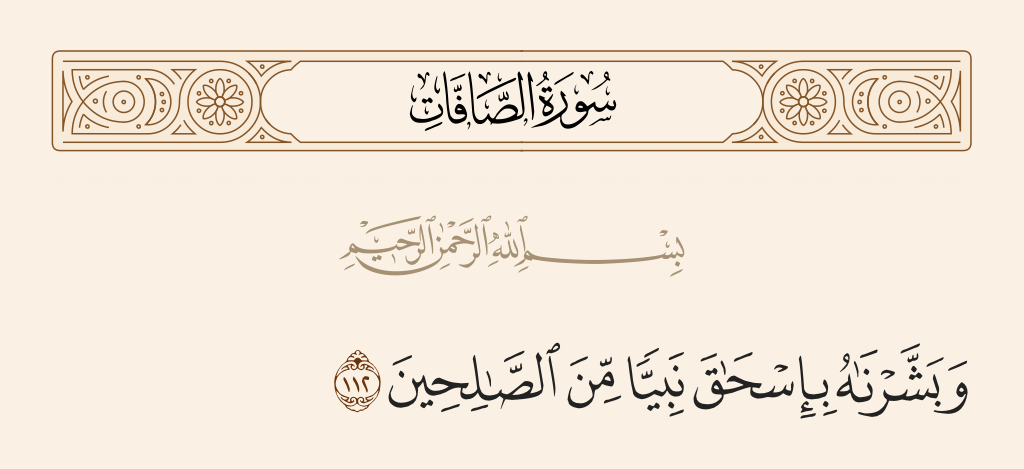 سُورَةُ الصَّافَّاتِ
بِسْمِ ٱللَّهِ ٱلرَّحْمَٰنِ ٱلرَّحِيمِ
وَبَشَّرْنَٰهُ بِإِسْحَٰقَ نَبِيًّا مِّنَ ٱلصَّٰلِحِينَ ١١٢